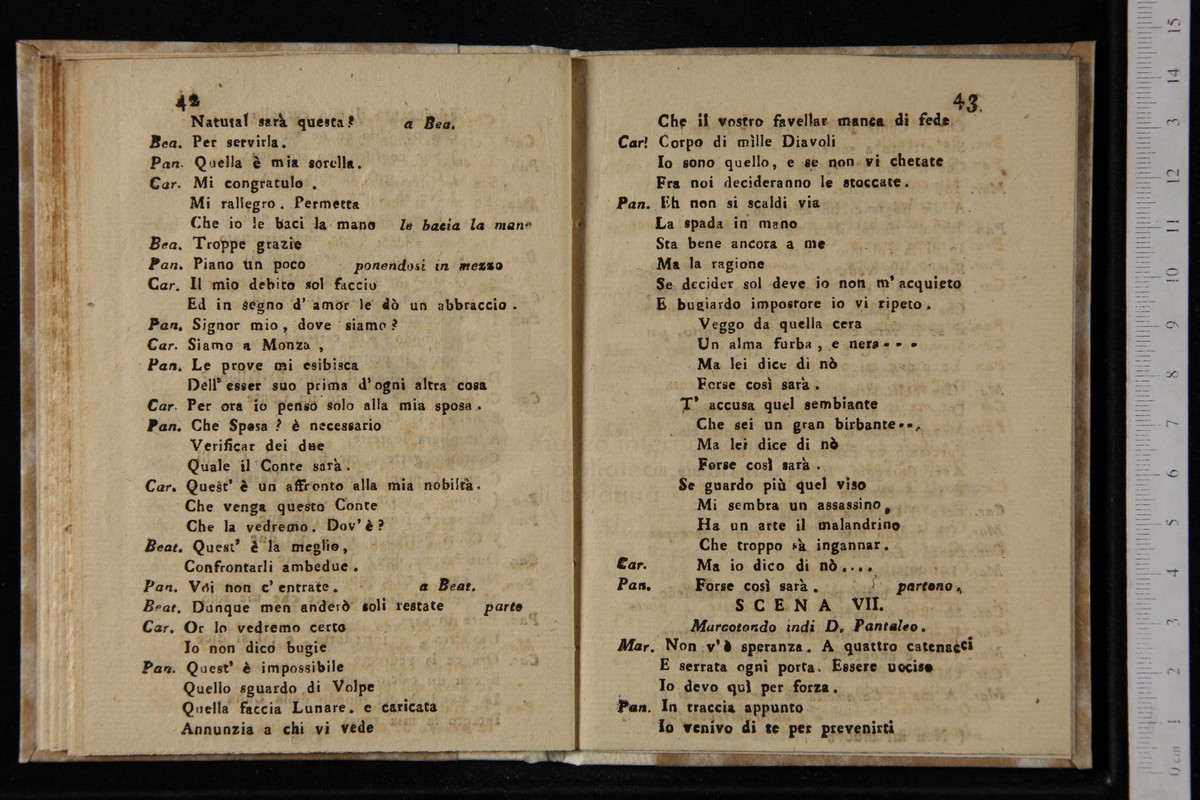 42
Natutal sarà questa? a Bea.
Bea. Per servirla.
Pan. Quella è mia sorella.
Car. Mi congratulo .
Mi rallegro . Permetta
Che io le baci la mano le bacia la mano
Bea. Troppe grazie
Pan. Piano un poco ponendosi in mezzo
Car. Il mio debito sol faccio
Ed in segno d' amor le dò un abbraccio .
Pan. Signor mio , dove siamo ?
Car. Siamo a Monza ,
Pan. Le prove mi esibisca
Dell' esser suo prima d' ogni altra cosa
Car. Per ora io penso solo alla mia sposa .
Pan. Che Sposa ? è necessario
Verificar dei due
Quale il Conte sarà .
Car. Quest' è un affronto alla mia nobiltà .
Che venga questo Conte
Che la vedremo . Dov' è ?
Beat. Quest' è la meglio ,
Confrontarli ambedue .
Pan. Voi non c' entrate . a Beat.
Beat. Dunque men anderò soli restate parte
Car. Or lo vedremo certo
Io non dico bugie
Pan. Quest' è impossibile
Quello sguardo di Volpe
Quella faccia Lunare . e caricata
Annunzia a chi vi vede
43
Che il vostro favellar manca di fede
Car. Corpo di mille Diavoli
Io sono quello , e se non vi chetate
Fra noi decideranno le stoccate .
Pan. Eh non si scaldi via
La spada in mano
Sta bene ancora a me
Ma la ragione
Se decider sol deve io non m' acquieto
E bugiardo impostore io vi ripeto .
Veggo da quella cera
Un alma furba , e nera - - -
Ma lei dice di nò
Forse così sarà .
T' accusa quel sembiante
Che sei un gran birbante . . .
Ma lei dice di nò
Forse così sarà .
Se guardo più quel viso
Mi sembra un assassino ,
Ha un arte il malandrino
Che troppo sà ingannar .
Car. Ma io dico di nò . . . .
Pan. Forse così sarà . partono .
SCENA VII.
Marcotondo indi D. Pantaleo .
Mar. Non v' è speranza . A quattro catenacci
E serrata ogni porta . Essere uociso
Io devo quì per forza .
Pan. In traccia appunto
Io venivo di te per prevenirti
0 cm 1 2 3 4 5 6 7 8 9 10 11 12 13 14 15